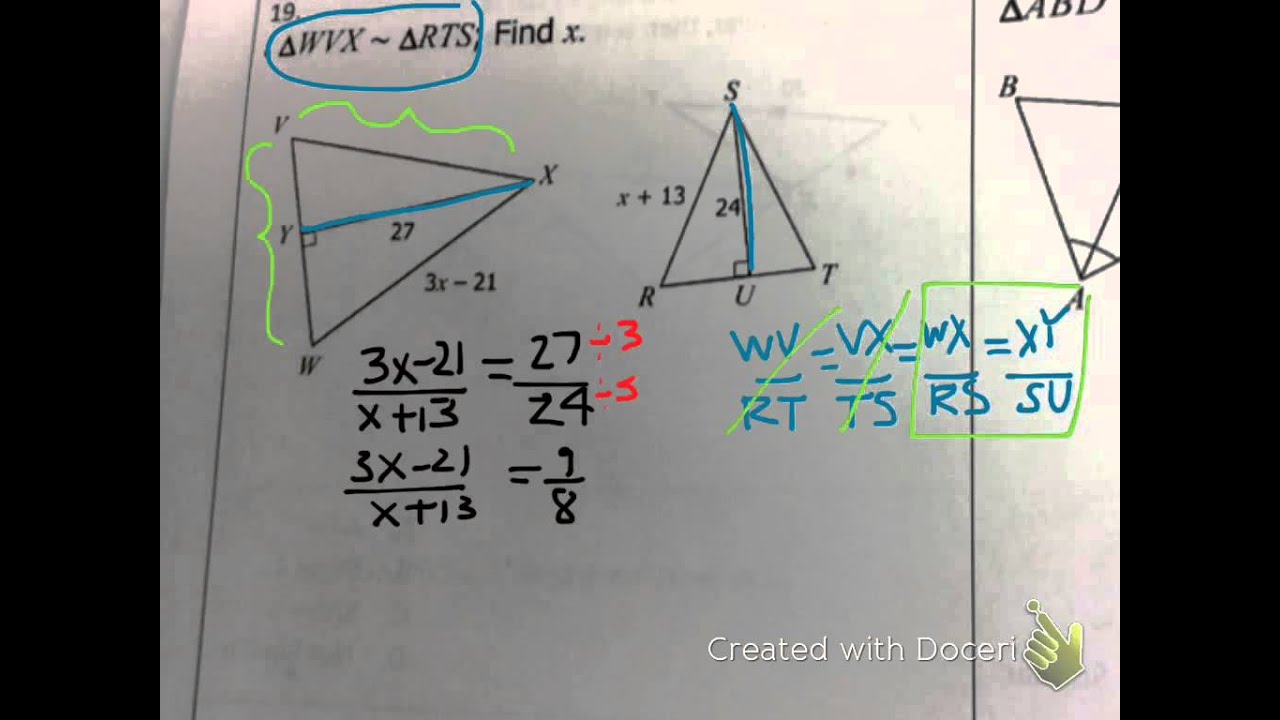 19.
ΔWVX ~ ΔRTS; Find x.
ΔABD
V
X
Y
27
3x − 21
W
S
x + 13
24
R
U
T
B
A
3x-21 = 27 ÷3
x+13 24 ÷3
3x-21 = 9
x+13 8
WV = VX = WX = XY
RT TS RS SU
Created with Doceri